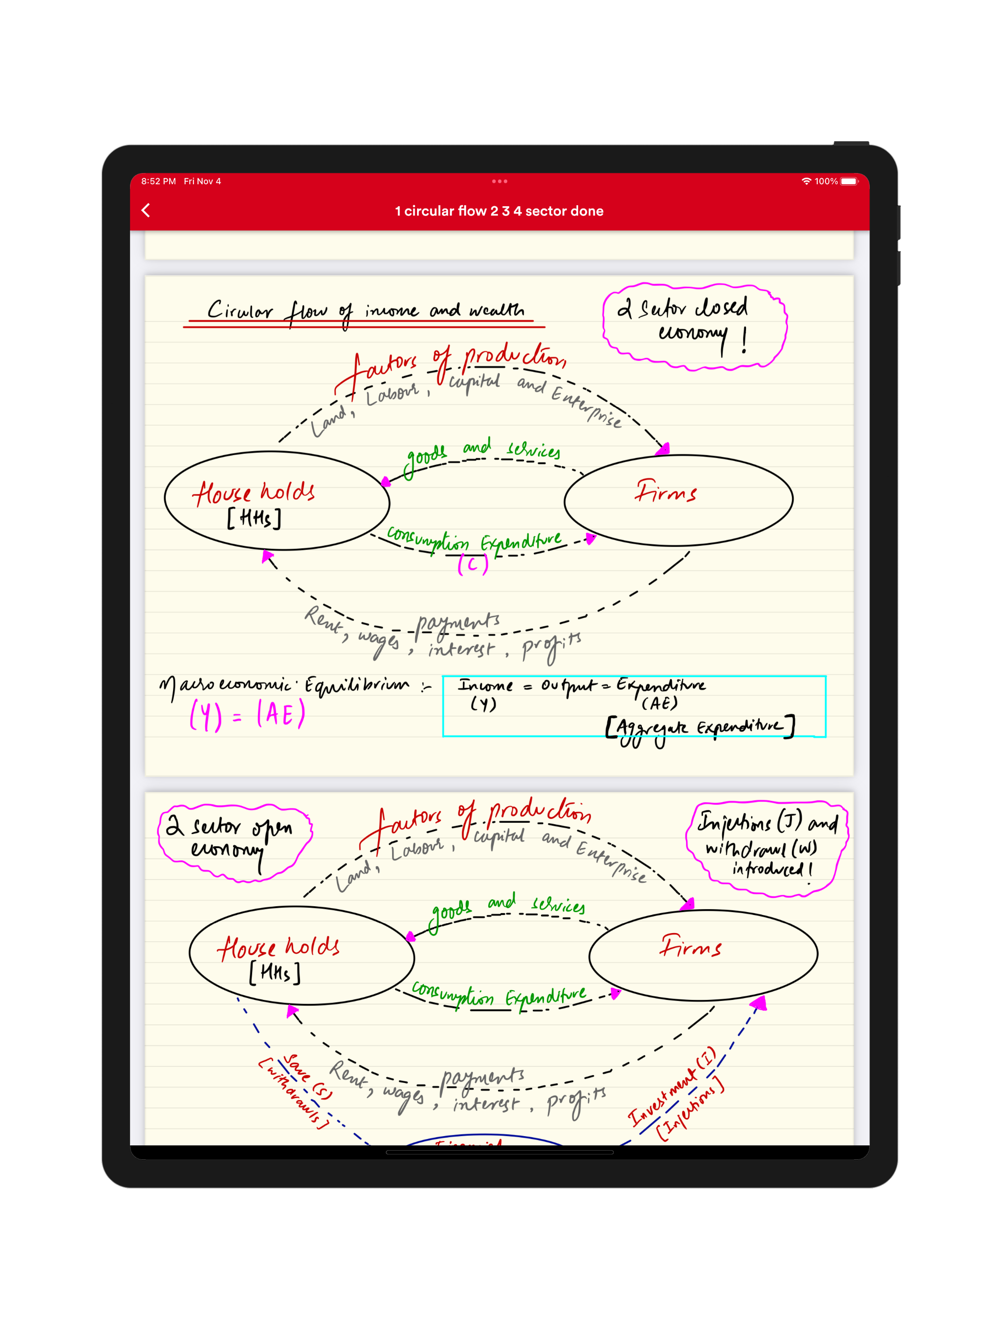 8:52 PM Fri Nov 4
100%
1 circular flow 2 3 4 sector done
Circular flow of income and wealth
2 Sector closed
economy !
factors of production
Land, Labour, capital and Enterprise
goods and services
House holds
[HHs]
Firms
consumption Expenditure
(C)
payments
Rent, wages, interest, profits
Macroeconomic Equilibrium :-
(Y) = (AE)
Income = Output = Expenditure
(Y) (AE)
[Aggregate Expenditure]
2 sector open
economy
factors of production
Land, Labour, capital and Enterprise
Injections (J) and
withdrawl (W)
introduced!
goods and services
House holds
[HHs]
Firms
consumption Expenditure
Save (S)
[withdrawls]
payments
Rent, wages, interest, profits
Investment (I)
[Injections]